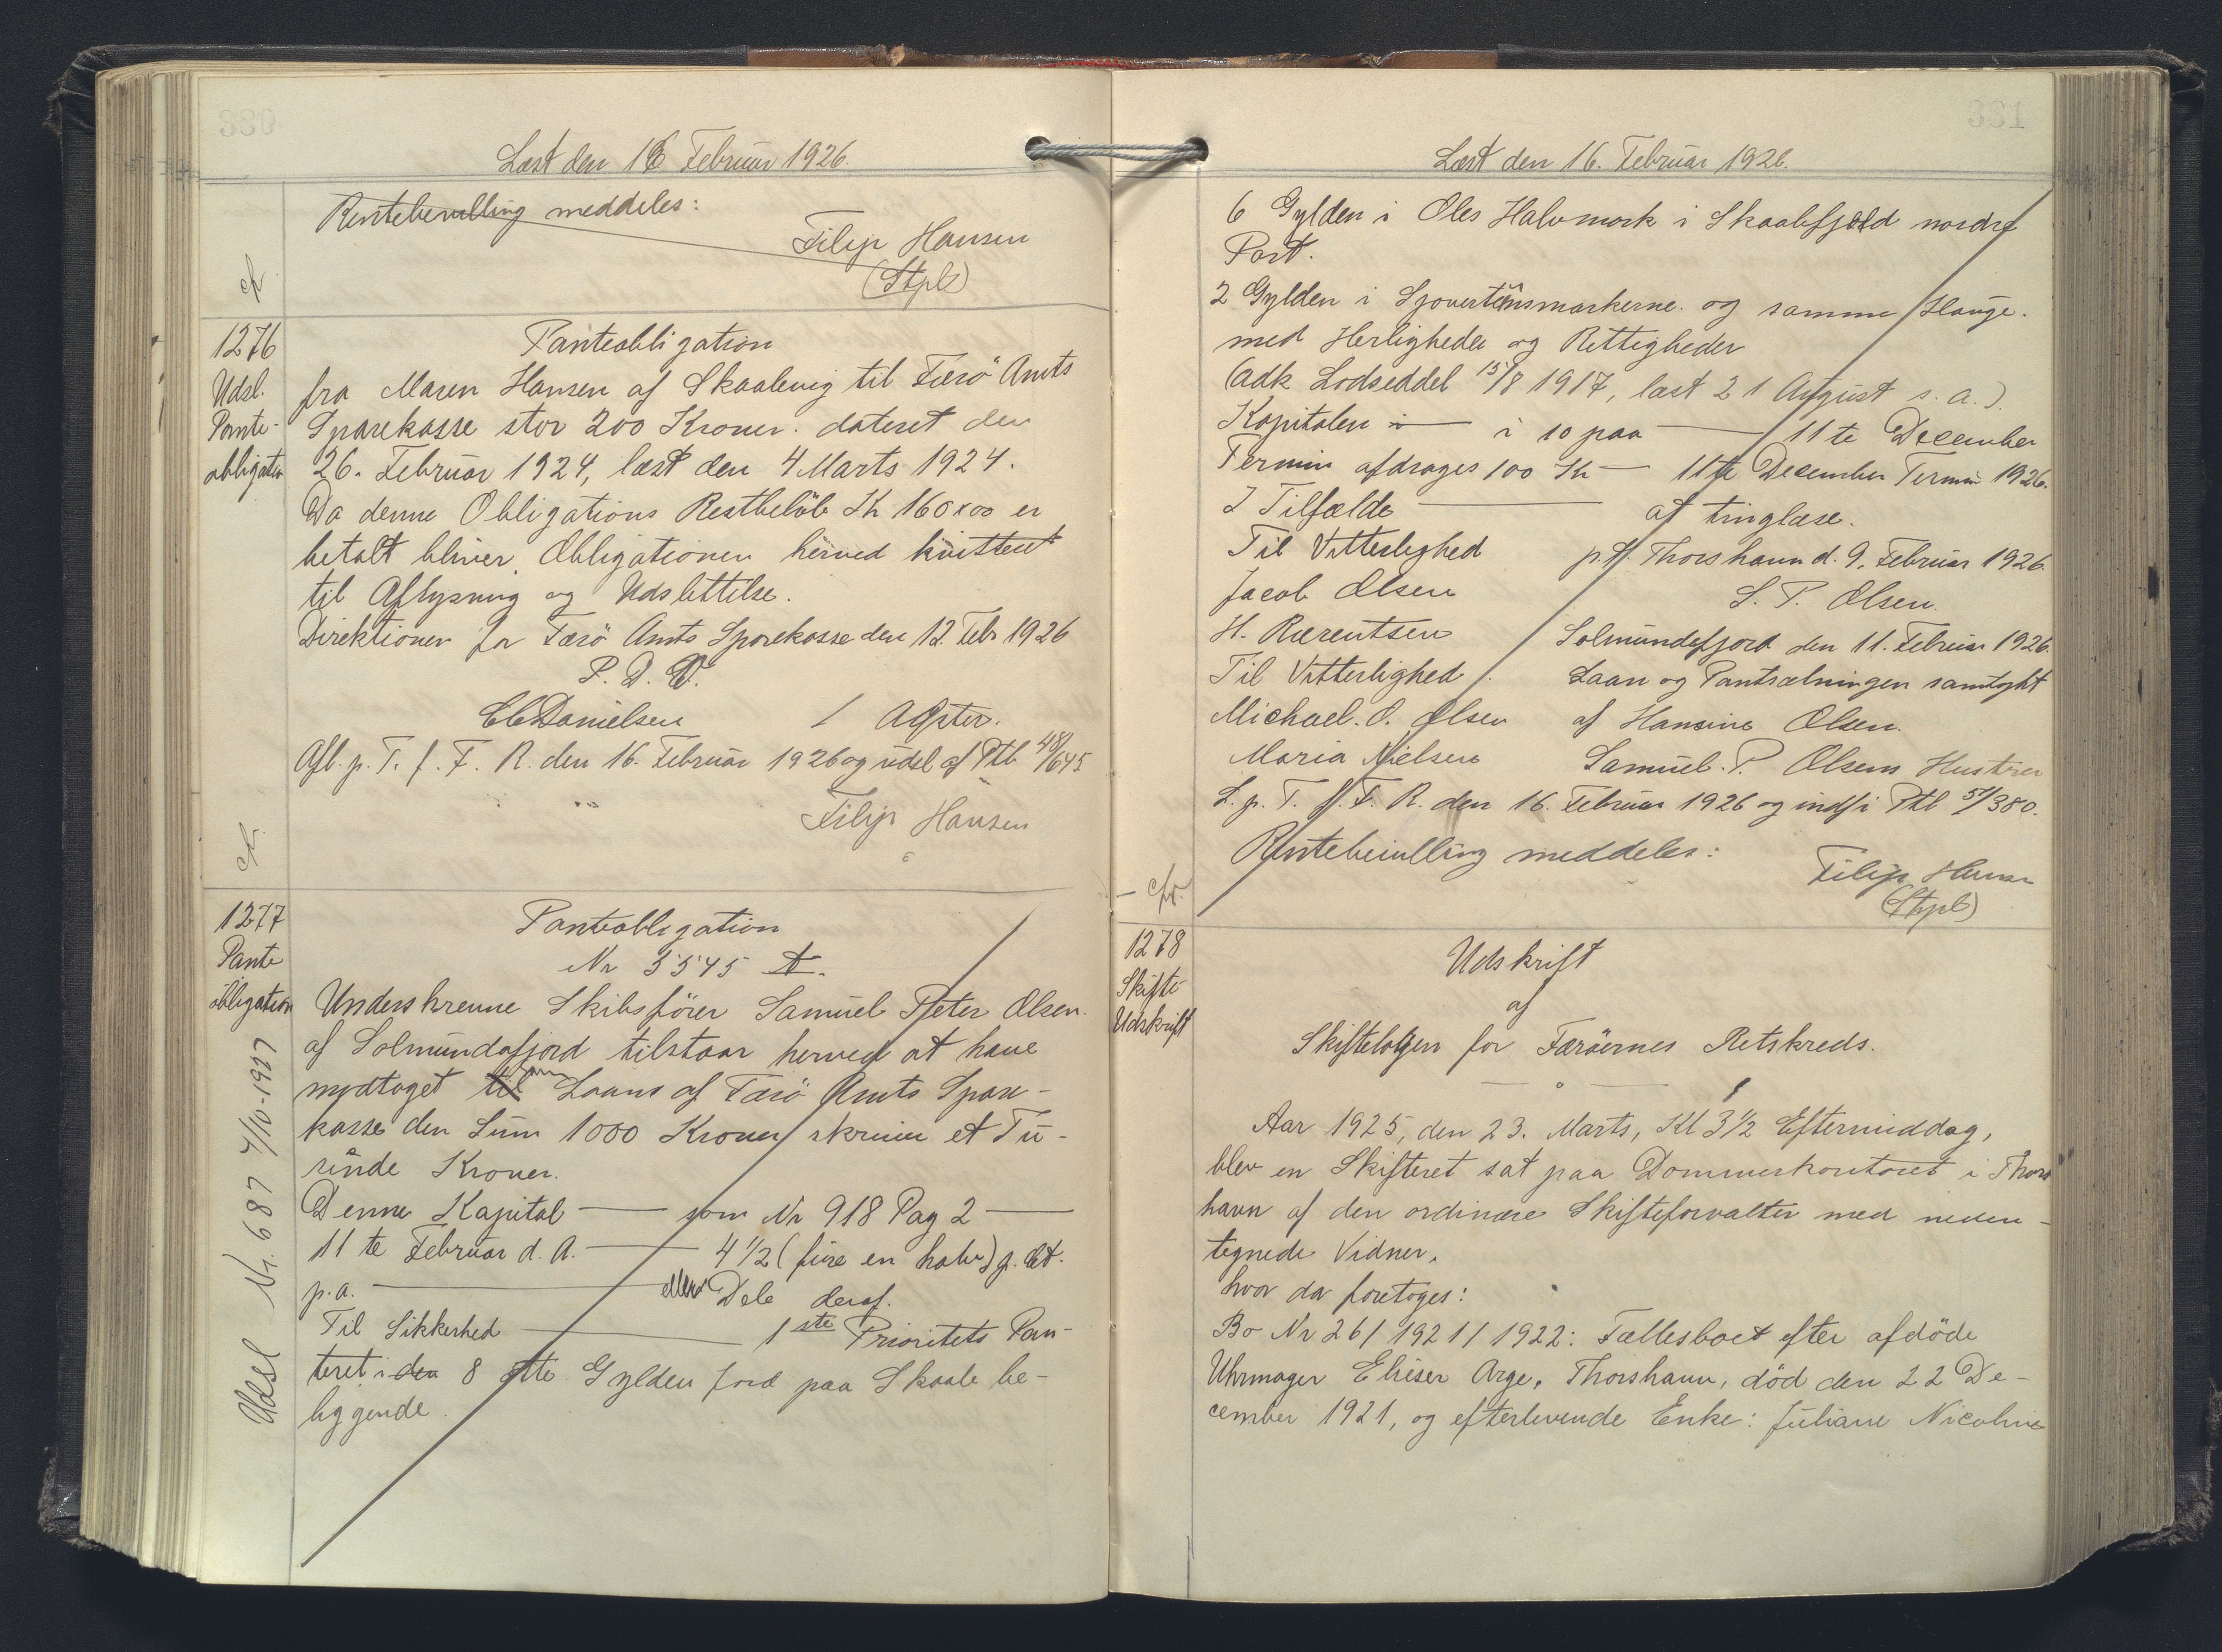 380
Læst den 16 Februar 1926.
Rentebevilling meddeles:
Filip Hansen
(Stpl)
cf
1276
Udsl.
Pante-
obligation
Panteobligation
fra Maren Hansen af Skaalevig til Færö Amts
Sparekasse stor 200 Kroner. dateret den
26. Februar 1924, læst den 4 Marts 1924.
Da denne Obligations Restbelöb Kr 160x00 er
betalt bliver Obligationen herved kvitteret
til Aflysning og Udslettelse.
Direktionen for Færö Amts Sparekasse den 12. Febr 1926
P. D. V.
CCDanielsen / A
Afl. p. T. f. F. R. den 16. Februar 1926 og udsl af Ptb 48/645
Filip Hansen
cf.
1277
Pante
obligation
Udsl Nr. 687 7/10-1937
Panteobligation
Nr 5545 A.
Underskrevne Skibsförer Samuel Peter Olsen
af Solmundefjord tilstaar herved at have
modtaget til Laans af Færö Amts Spare-
kasse den Sum 1000 Kroner skriver et Tu-
sinde Kroner.
Denne Kapital — som Nr 918 Pag 2 —
11 te Februar d. A. — 4 1/2 (fire en halv) p. Ct.
p.a. — eller Dele deraf.
Til Sikkerhed — 1ste Prioritets Pan-
teret i den 8 otte Gylden Jord paa Skaale be-
liggende
381
Læst den 16. Februar 1926.
6 Gylden i Oles Halvmark i Skaalefjeld nordre
Part.
2 Gylden i Sjovertunsmarkerne og samme Hauge.
med Herligheder og Rettigheder
(adk Lodseddel 15/8 1917, læst 21 August s. a.)
Kapitalen — i 10 paa — 11 te December
Termin afdrages 100 Kr — 11 te December Termin 1926.
I Tilfælde — at tinglæse.
Til Vitterlighed p.t. Thorshavn d. 9. Februar 1926
Jacob Olsen S. P. Olsen.
H. Rærentsen Solmundefjord den 11. Februar 1926.
Til Vitterlighed Laan og Pantsætningen samtykt
Michael. O. Olsen af Hansine Olsen.
Maria Nielsen Samuel. P. Olsens Hustru
L. p. T. f. F. R. den 16. Februar 1926 og indf i Ptb 51/380.
Rentebevilling meddeles:
Filip Hansen
(Stpl)
cfr.
1278
Skifte-
Udskrift
Udskrift
af
Skifteloggen for Færöernes Retskreds.
Aar 1925, den 23. Marts, Kl 3 1/2 Eftermiddag,
blev en Skifteret sat paa Dommerkontoret i Thors
havn af den ordinære Skifteforvalter med neden-
tegnede Vidner,
hvor da foretoges:
Bo Nr 26/1921/1922: Fællesboet efter afdöde
Uhrmager Elieser Arge, Thorshavn, död den 22 De-
cember 1921, og efterlevende Enke: Juliane Nicoline